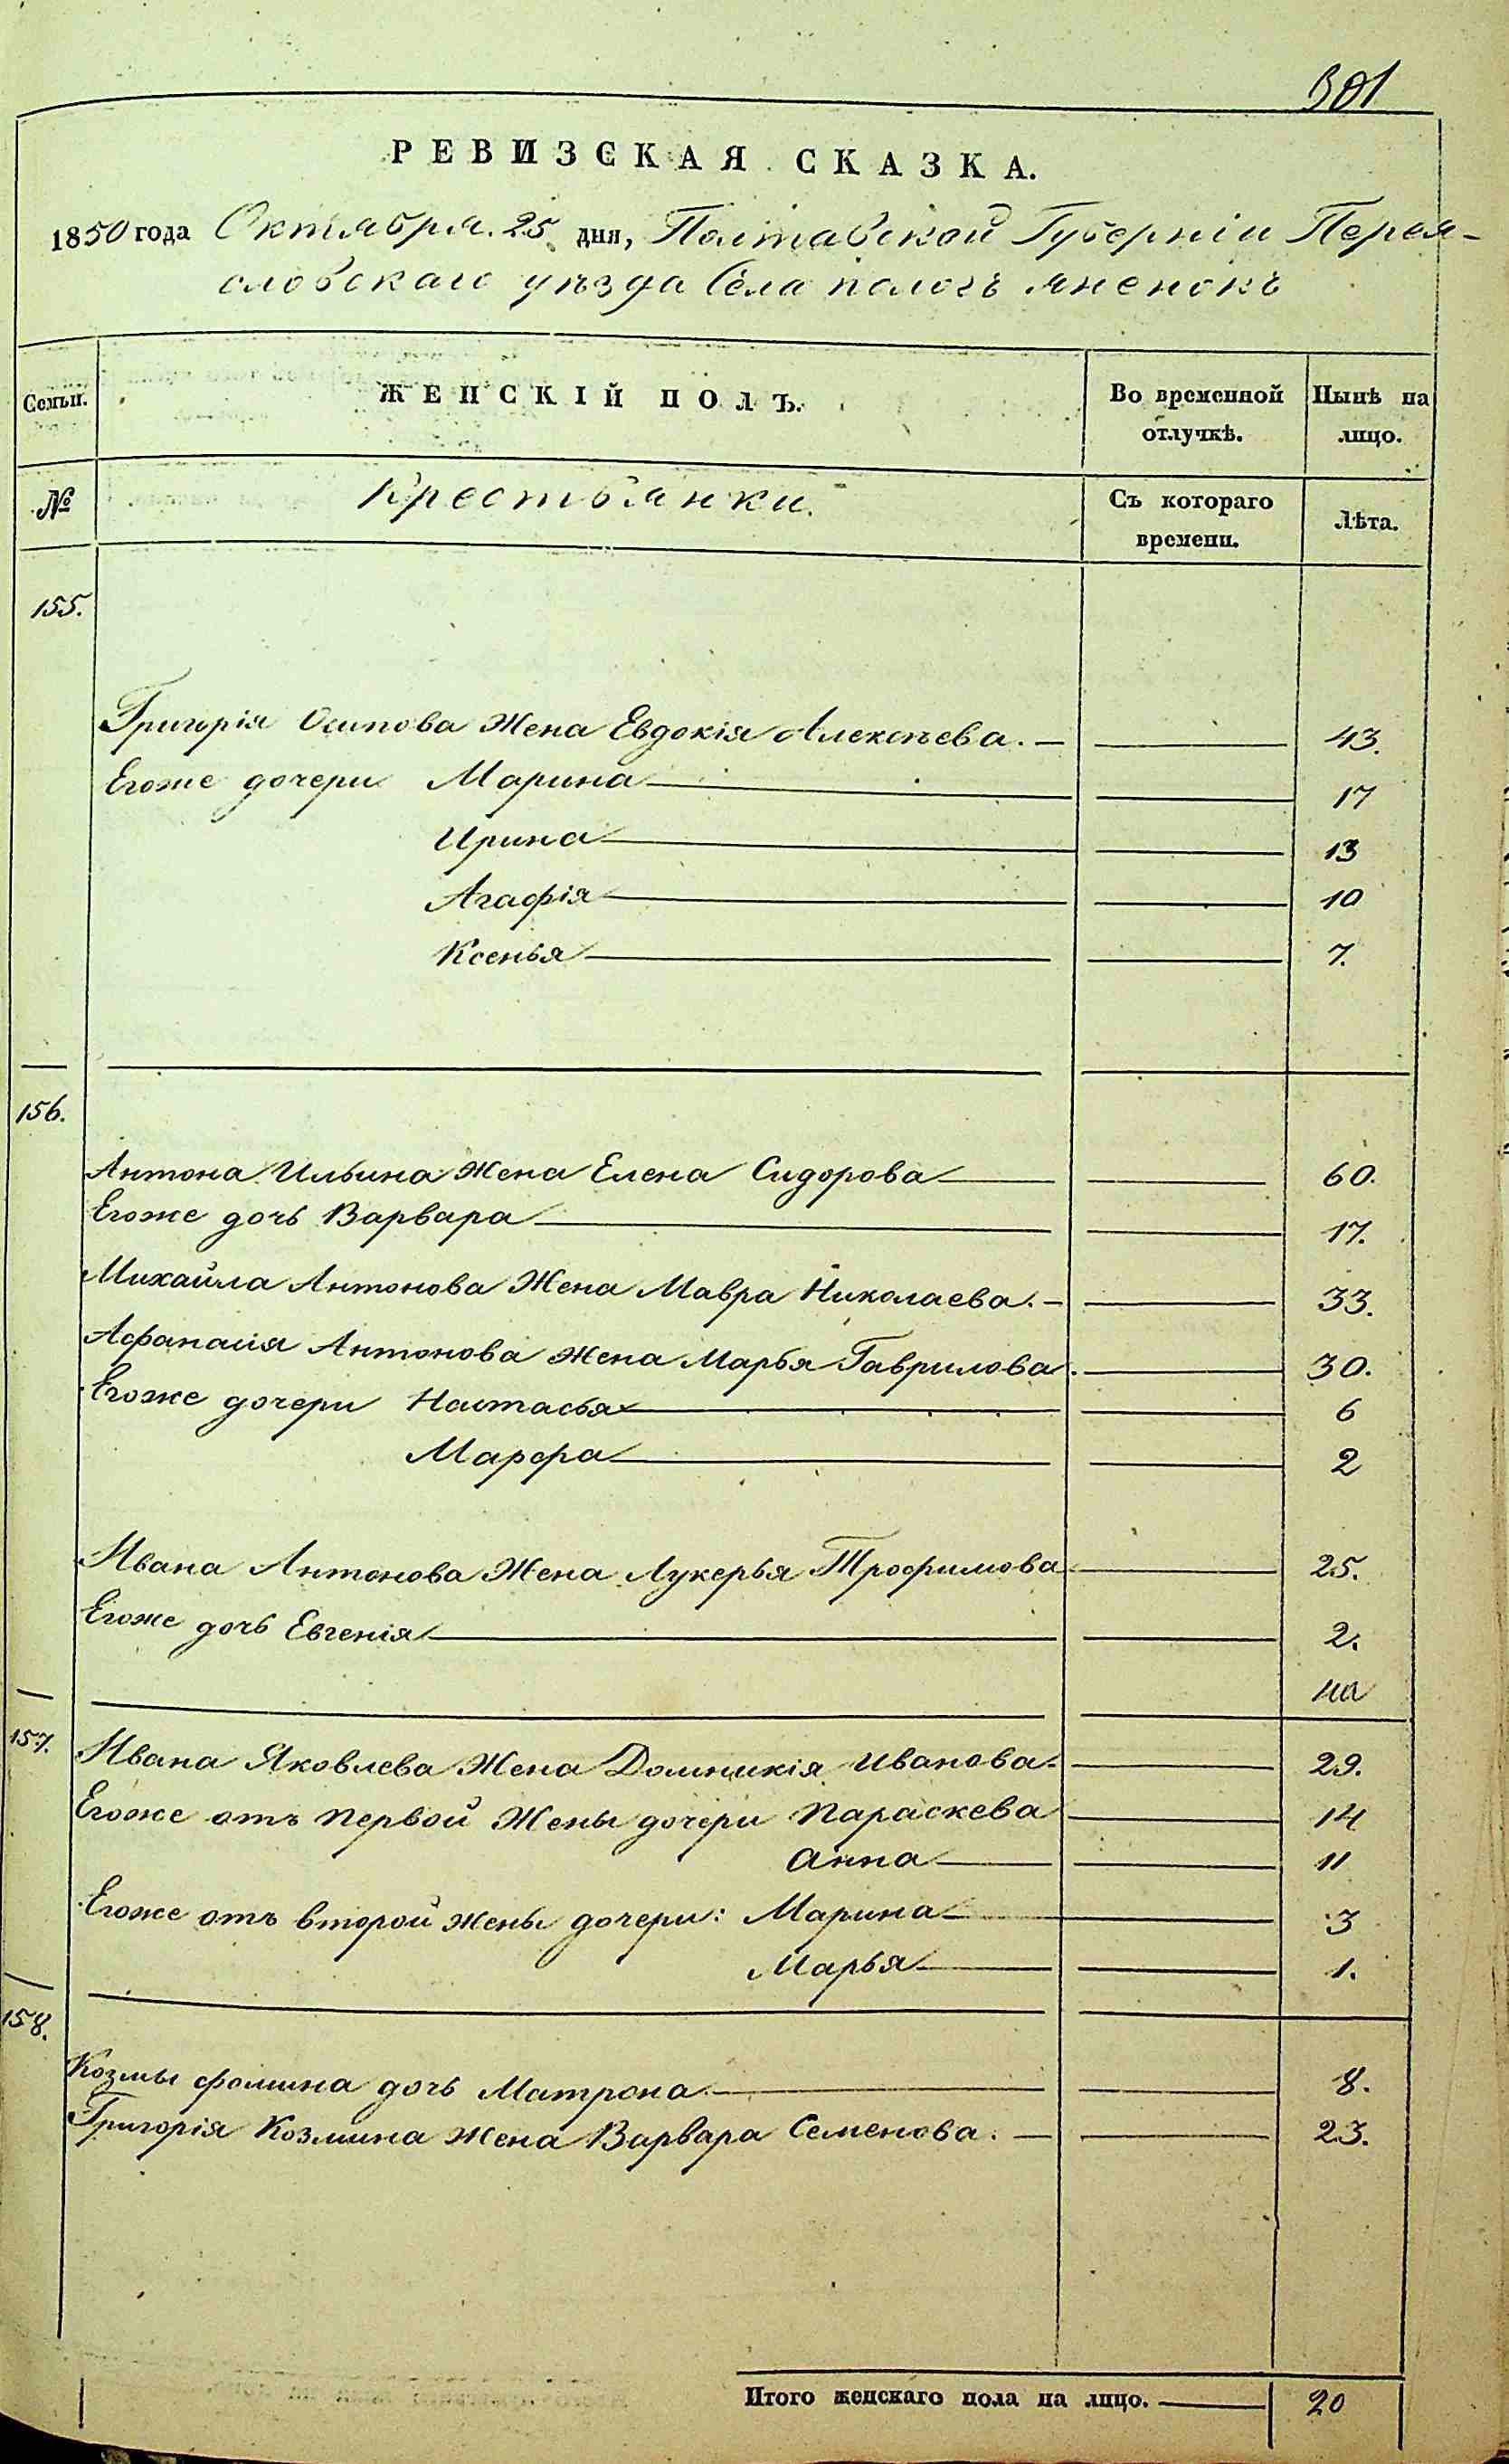 301
РЕВИЗСКАЯ СКАЗКА.
1850 года Октября 25 дня, Полтавской Губерніи Перея-
словскаго уѣзда Села
Семьи. ЖЕНСКІЙ ПОЛЪ. Во временной отлучкѣ. Нынѣ на лицо.
№ Крестьянки. Съ котораго времени. Лѣта.
155.
Григорія Осипова Жена Евдокія Алексѣева. 43.
Егоже дочери Марина 17
Ирина 13
Агафія 10
Ксенья 7.
156.
Антона Ильина Жена Елена Сидорова 60.
Егоже дочь Варвара 17.
Михайла Антонова Жена Мавра Николаева. 33.
Афанасія Антонова Жена Марья Гаврилова. 30.
Егоже дочери Настасья 6
Марфа 2
Ивана Антонова Жена Лукерья Трофимова 25.
Егоже дочь Евгенія 2.
157. Ивана Яковлева Жена Домникія Иванова. 29.
Егоже отъ первой Жены дочери Параскева 14
Анна 11
Егоже отъ второй жены дочери: Марина 3
Марья 1.
158.
Козмы Фомина дочь Матрона 8.
Григорія Козмина жена Варвара Семенова. 23.
Итого женскаго пола на лицо. 20